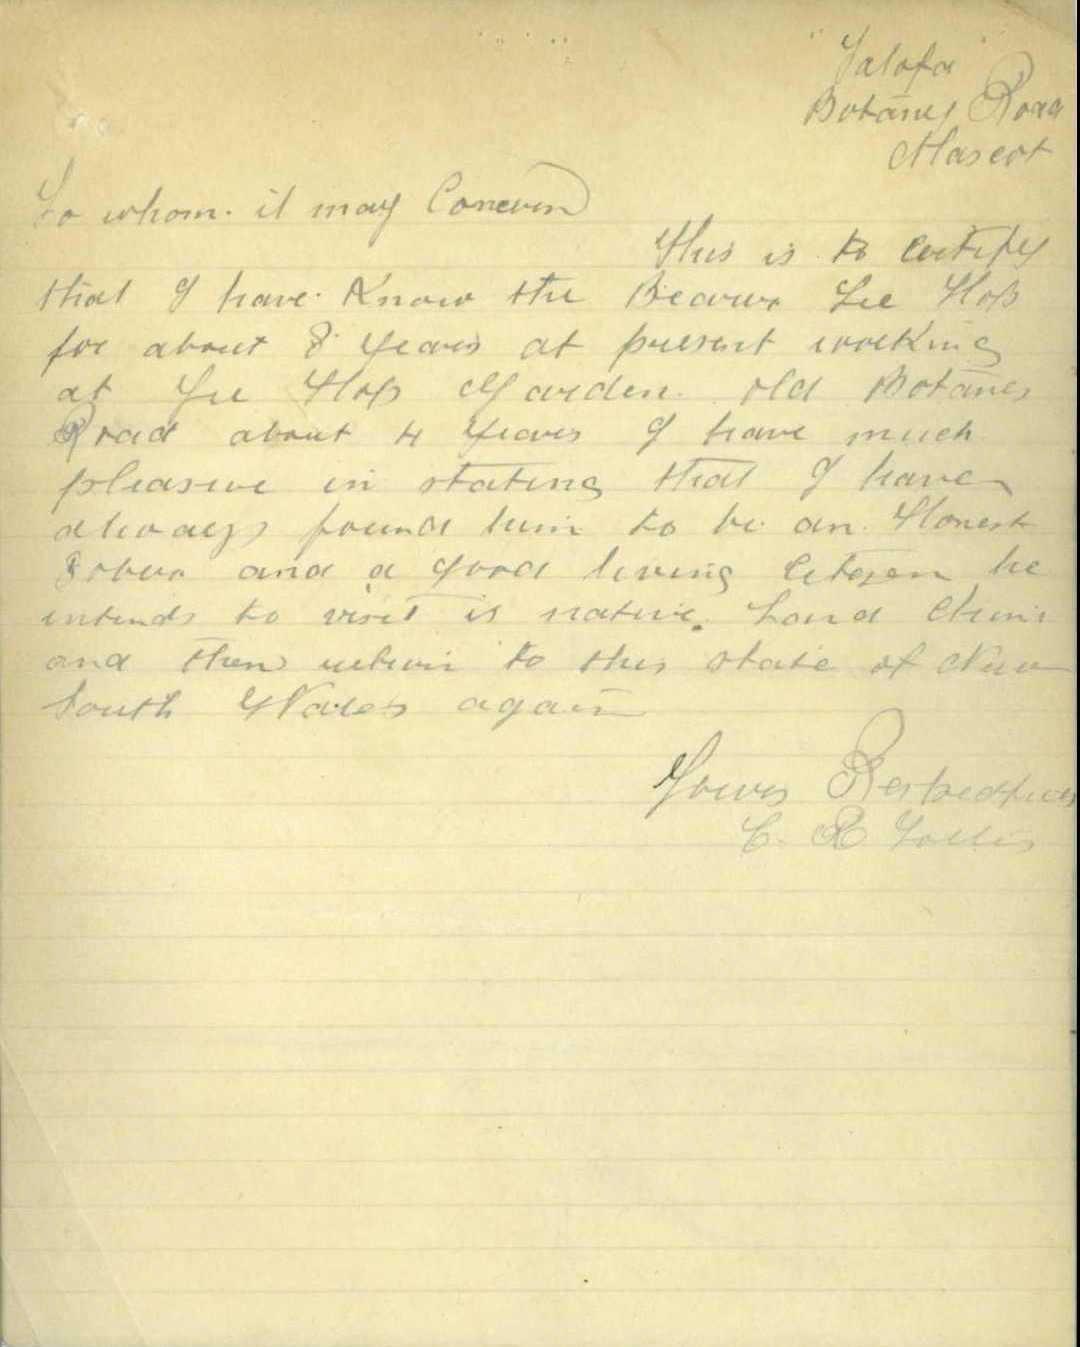 "Talofa"
Botany Road
Mascot
To whom. it may Concern
This is to certify
that I have. Know the Bearer Lee Hop
for about 8 years at present working
at Lee Hop Garden. old Botany
Road about 4 years I have much
pleasure in stating that I have
always found him to be. an. Honest
Sober and a good living Citezen he
intends to visit is native. Land China
and then return to this state of New
South Wales again
Yours Respectfully
C. R